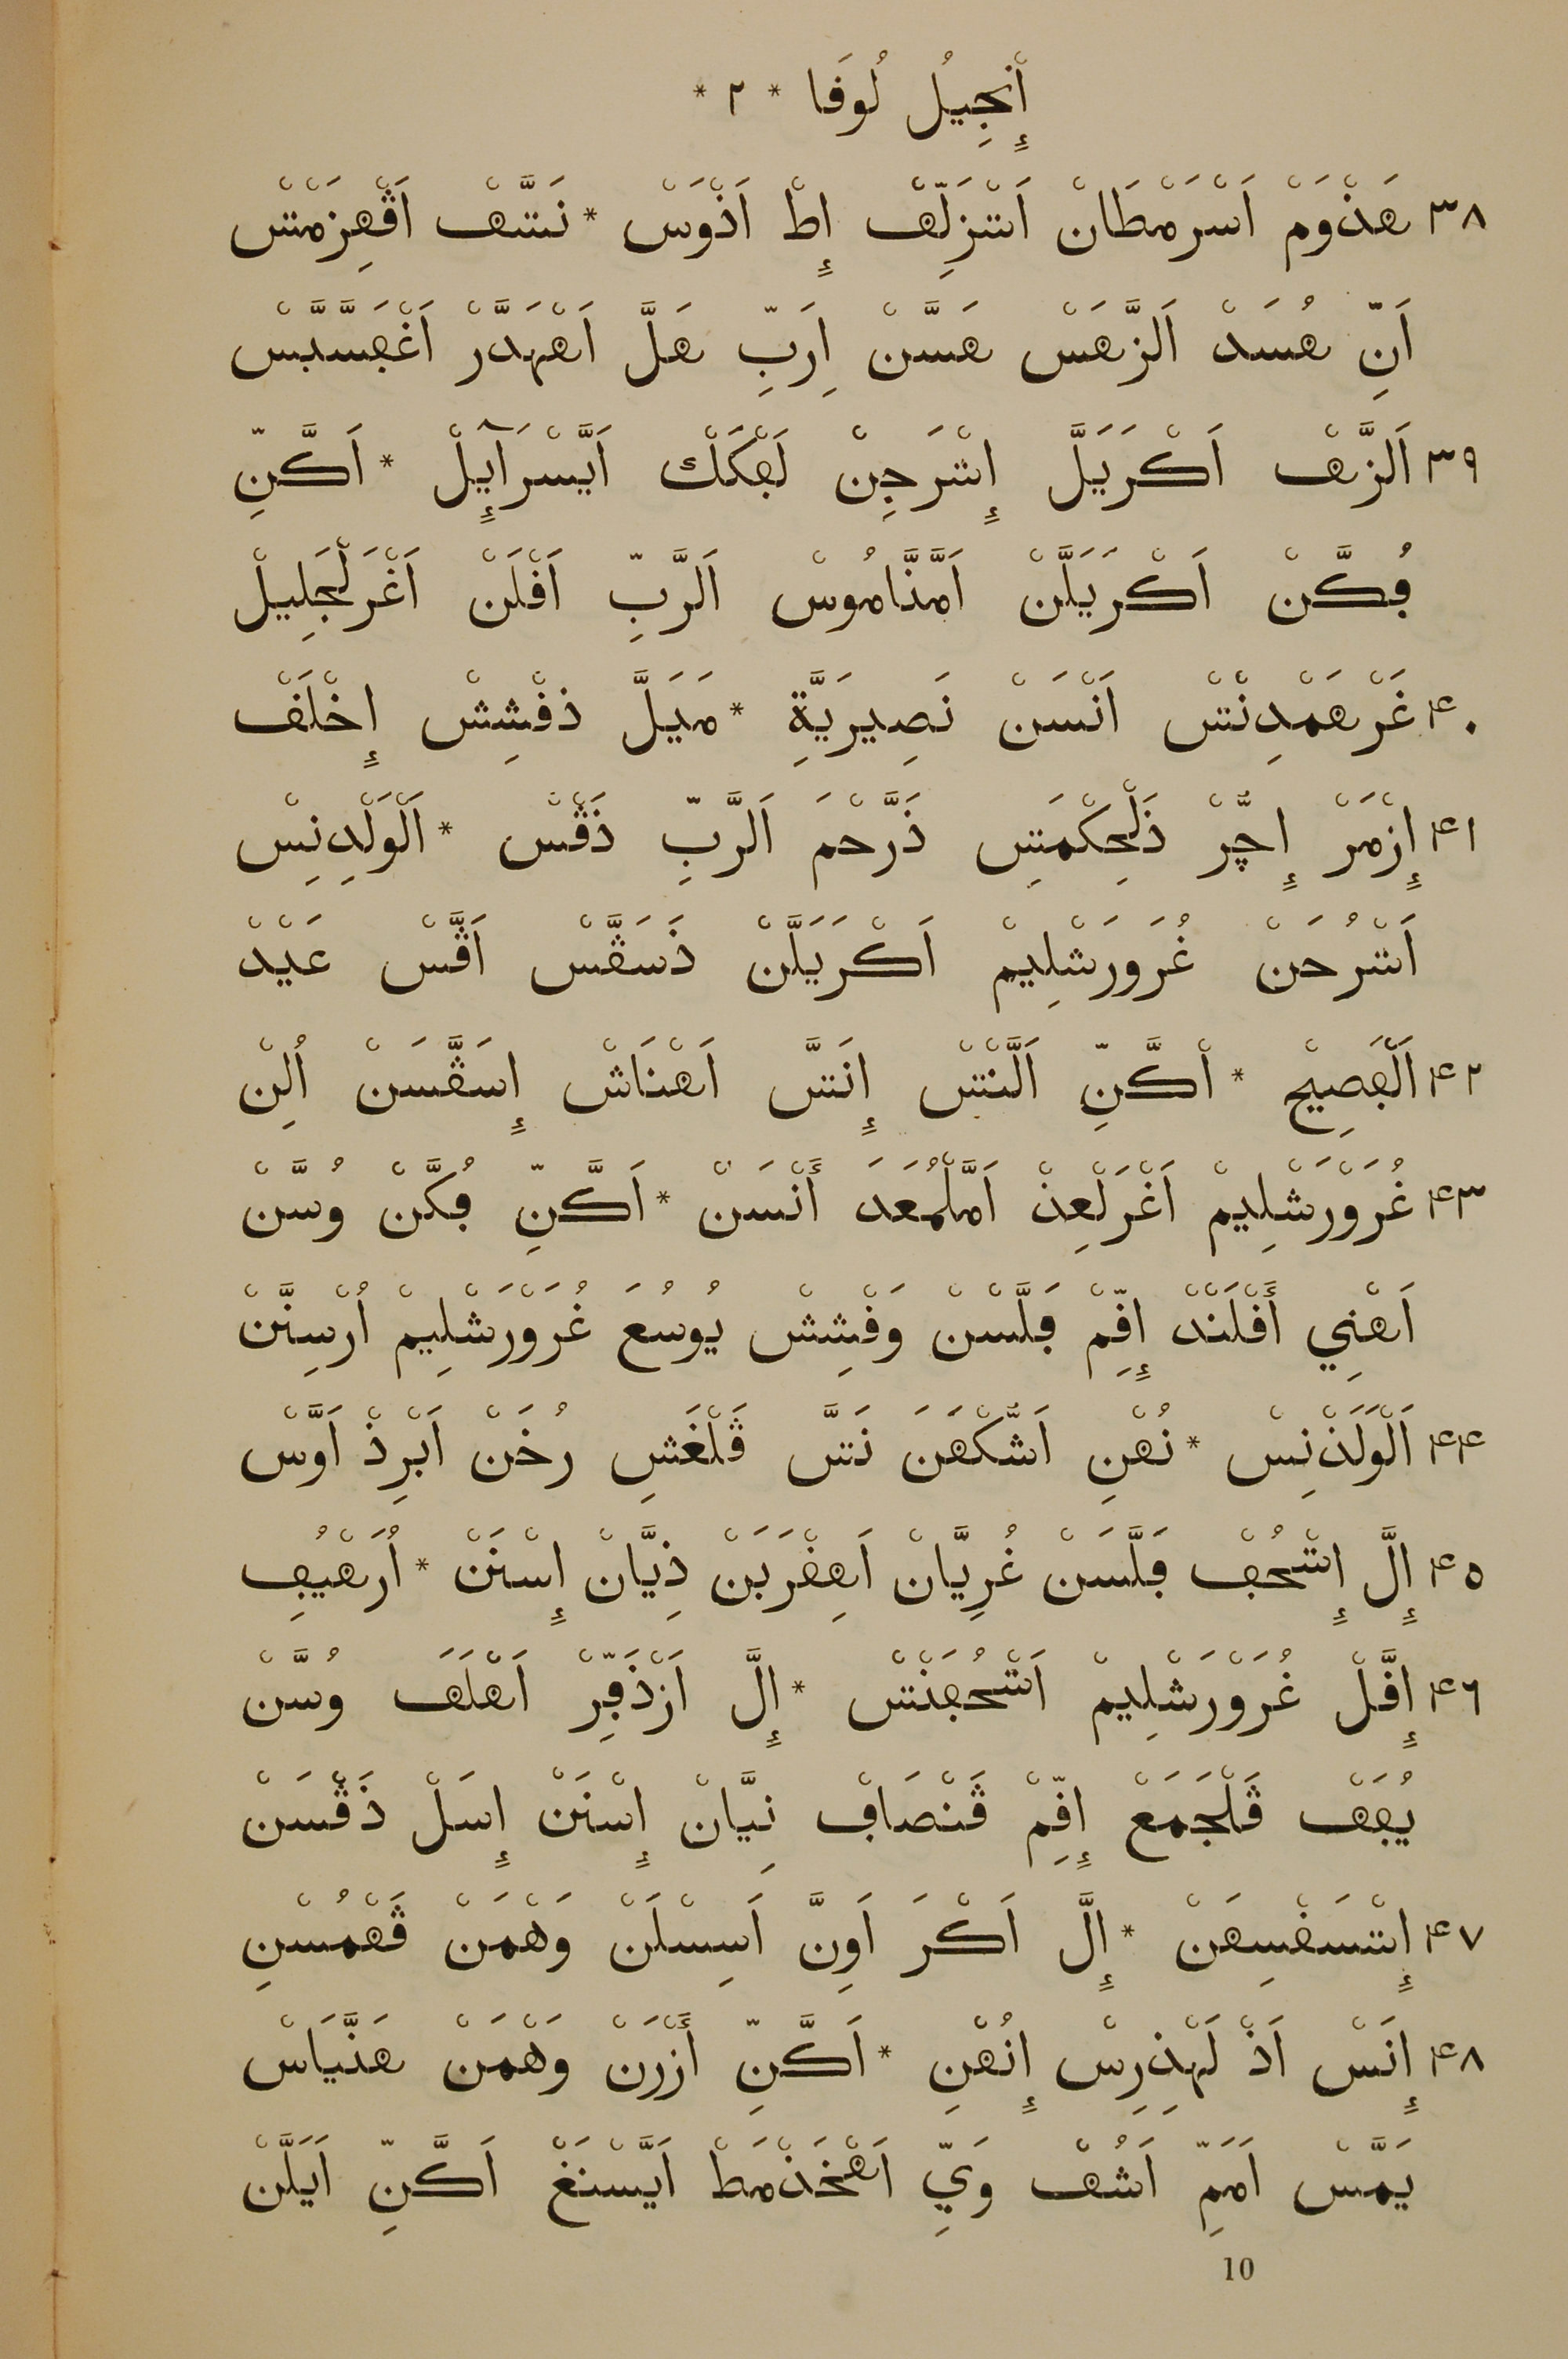 إِنْجِيلُ لُوقَا * ٢ *
٣٨ هَذْوَمْ اَسْرَمْطَانْ اَتْزَلِّڢْ إِطْ اَذْوَسْ * نَتَّڢْ اَڤْهِزَمْتْسْ
اَنِّ هُسَدْ اَلزَّهَسْ هَسَّنْ اِرَبِّ هَلَّ اَهْهَدَّرْ اَغْبَسَّبَّسْ
٣٩ اَلزَّڢْ اَكْرَيَلَّ إِتْرَجِنْ لَڢْكَكْ اَيَّسْرَآيِلْ * اَكَّنِّ
ڢُكَّنْ اَكْرَيَلَّنْ اَمَّنَّامُوسْ اَلرَّبِّ اَفْلَنْ اَغْرَلْجَلِيلْ
٤٠ غَرْهَمْدِنْتْسْ اَنْسَنْ نَصِيرَيَّةِ * مَيَلَّ ذفْشِشْ إِخْلَڢْ
٤١ إِزْمَرْ إِچُّرْ ذَلْحِكْمَتِسْ ذَرَّحْمَ اَلرَّبِّ ذَڤْسْ * اَلْوَلْدِنِسْ
اَتْرُحَنْ غُرَوَرَشْلِيمْ اَكْرَيَلَّنْ ذَسَڤَّسْ اَڤَّسْ عَيْدْ
٤٢ اَلْڢَصِيحْ * اْكَّنِّ اَلَّنْتْسْ إِنَتَّ اَهْنَاشْ إِسَڤَّسَنْ اُلِنْ
٤٣ غُرَوْرَشْلِيمْ اَغْرَلْعِذْ اَمَّلْمُعَدَ أَنْسَنْ * اَكَّنِّ ڢُكَّنْ وُسَّنْ
اَهْنِي أَفْلَنْدْ إِقِّمْ ڢَلَّسْنْ وَفْشِشْ يُوسُعَ غُرَوْرَشْلِيمْ اُرْسِنَّنْ
٤٤ اَلْوَلَذْنِسْ * نُهْنِ اَشُّكْهَنَ نَتَّ ڤَلْغَشِ رُخَنْ اَبْرِذْ اَوَّسْ
٤٥ إِلَّ إِتْحُڢْ ڢَلَّسَنْ غُرِيَّانْ اَهِڢْرَبَنْ ذِيَّانْ إِسْنَنْ * اُرَهْيُڢِ
٤٦ إِقَّلْ غُرَوْرَشْلِيمْ اَتْحُڢَنْتْسْ * إِلَّ اَزْذَڢِّرْ اَهْلَڢَ وُسَّنْ
يُڢَهْ ڤَلْجَمَعْ إِقِّمْ ڤَنْصَاڢْ نِيَّانْ إِسْنَنْ إِسَلْ ذَڤْسَنْ
٤٧ إِتْسَڢْسِهَنْ * إِلَّ اَكْرَ اَوِنَّ اَسِسْلَنْ وَهْمَنْ ڤَهْمُسْنِ
٤٨ إِنَسْ اَذْ لَهْذِرِسْ إِنُهْنِ * اَكَّنِّ أَزْرَنْ وَهْمَنْ هَنَّيَاسْ
يَمَّسْ اَمَمِّ اَشُڢْ وَيِّ اَهْخَذْمَطْ اَيَّسْنَغْ اَكَّنِّ اَيَلَّنْ
10